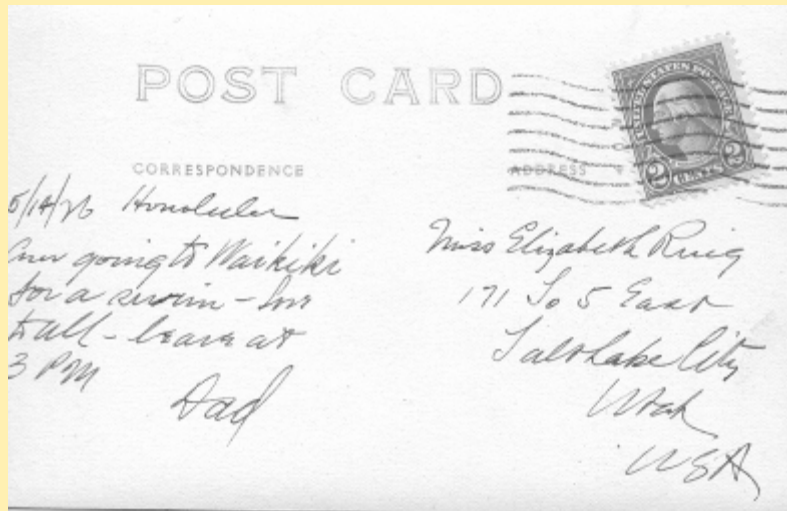 POST CARD
CORRESPONDENCE
ADDRESS
UNITED STATES POSTAGE
2 CENTS 2
5/14/26 Honolulu
Am going to Waikiki
for a swim - Love
to all - leave at
3 PM
Dad
Miss Elizabeth
171 So 5 East
Salt Lake City
Utah
USA